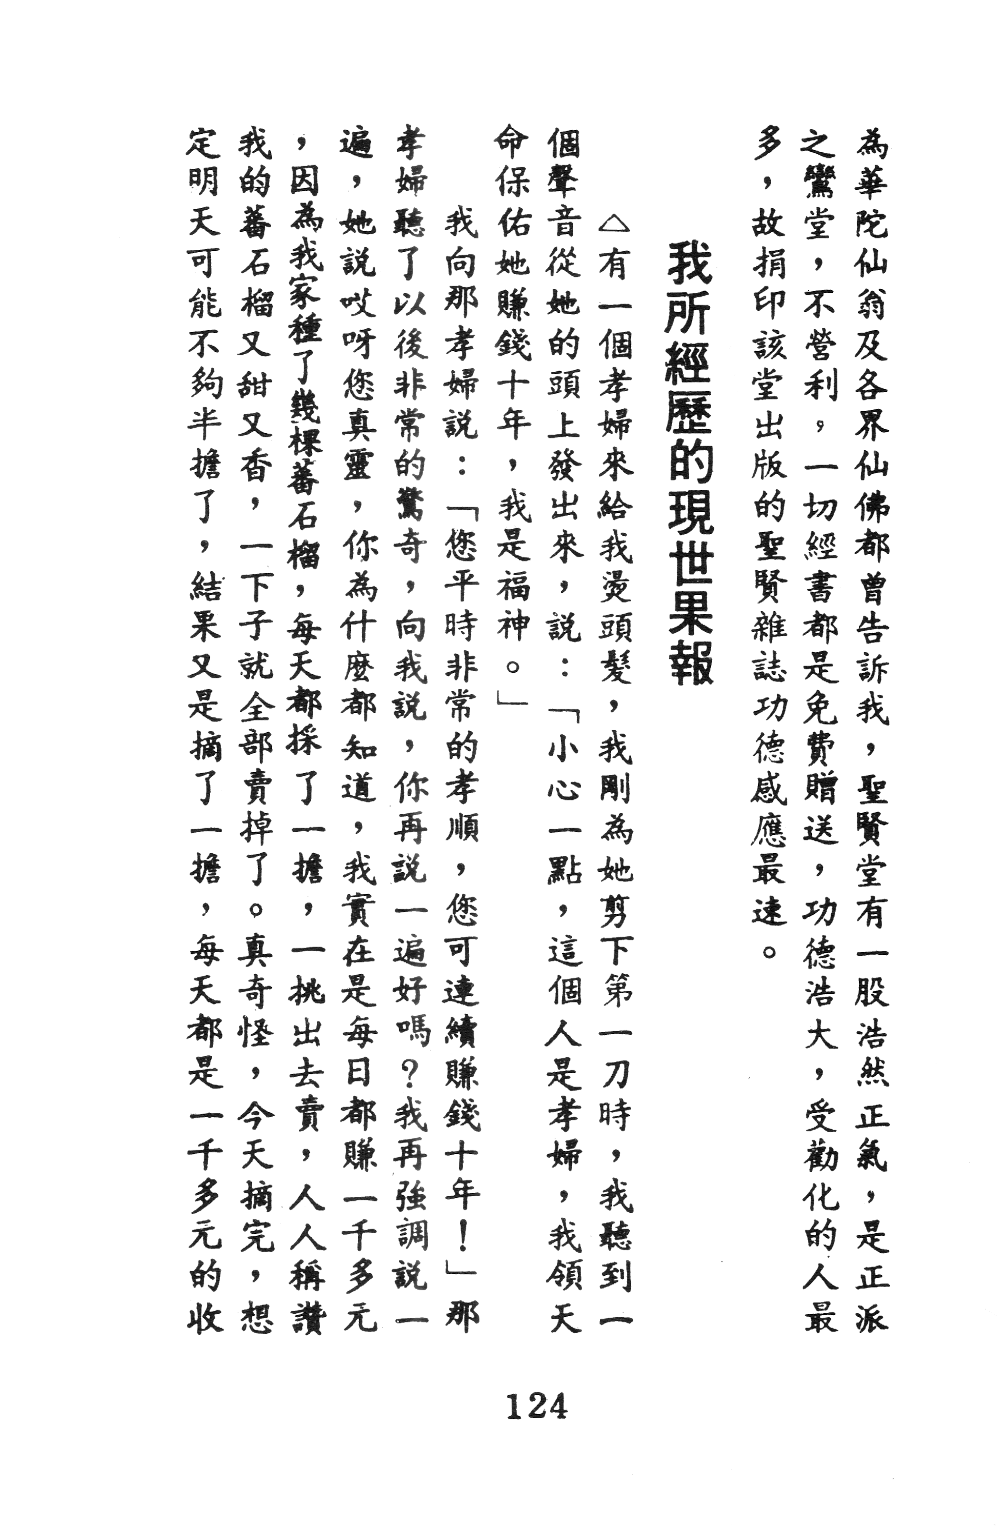 為華陀仙翁及各界仙佛都曾告訴我，聖賢堂有一股浩然正氣，是正派
之鸞堂，不營利，一切經書都是免費贈送，功德浩大，受勸化的人最
多，故捐印該堂出版的聖賢雜誌功德感應最速。
我所經歷的現世果報
△有一個孝婦來給我燙頭髮，我剛為她剪下第一刀時，我聽到一
個聲音從她的頭上發出來，說：「小心一點，這個人是孝婦，我領天
命保佑她賺錢十年，我是福神。」
我向那孝婦説：「您平時非常的孝順，您可連續賺錢十年！」那
孝婦聽了以後非常的驚奇，向我説，你再説一遍好嗎？我再強調説一
遍，她説哎呀您真靈，你為什麼都知道，我實在是每日都賺一千多元
，因為我家種了幾棵蕃石榴，每天都採了一擔，一挑出去賣，人人稱讚
我的蕃石榴又甜又香，一下子就全部賣掉了。真奇怪，今天摘完，想
定明天可能不夠半擔了，結果又是摘了一擔，每天都是一千多元的收
124